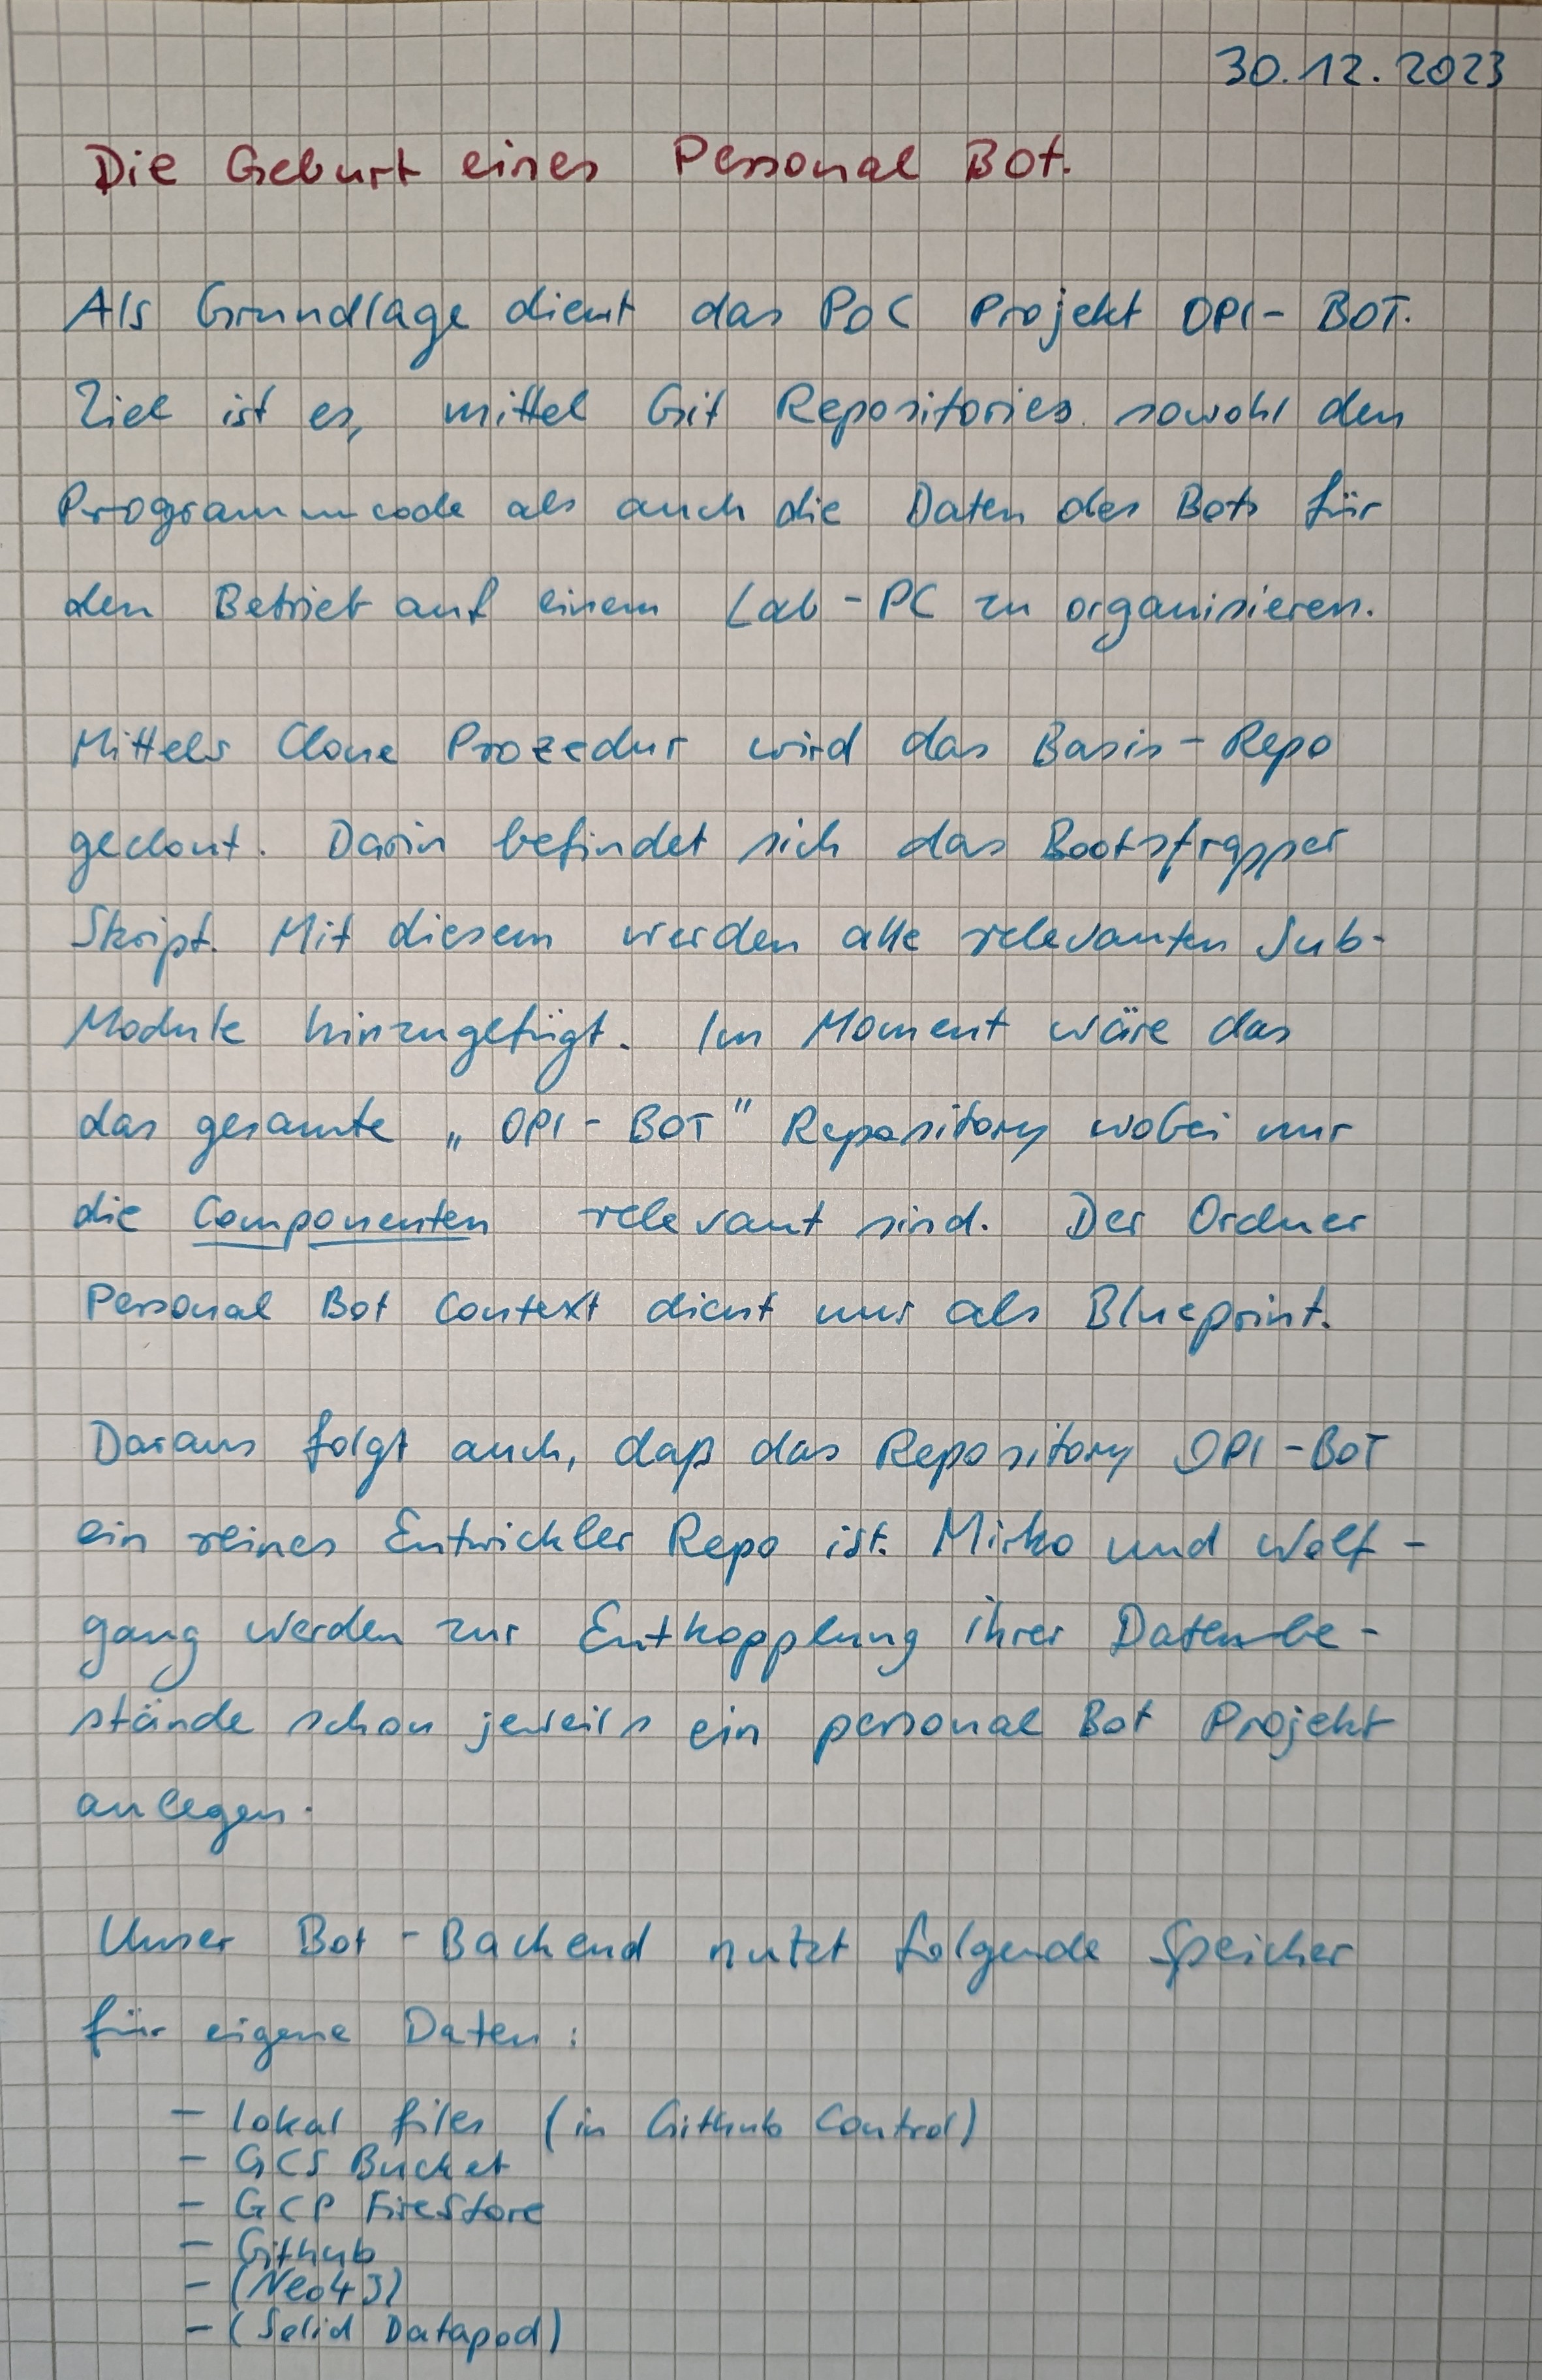 30.12.2023
Die Geburt eines Personal Bot.
Als Grundlage dient das PoC Projekt OPI-BOT.
Ziel ist es, mittel Git Repositories sowohl den
Programmcode als auch die Daten des Bots für
den Betrieb auf einem Lab-PC zu organisieren.
Mittels Clone Prozedur wird das Basis-Repo
geclont. Darin befindet sich das Bootstrapper
Skript. Mit diesem werden alle relevanten Sub-
Module hinzugefügt. Im Moment wäre das
das gesamte „OPI-BOT" Repository wobei nur
die Componenten relevant sind. Der Ordner
Personal Bot Context dient nur als Blueprint.
Daraus folgt auch, daß das Repository OPI-BOT
ein reines Entwickler Repo ist. Mirko und Wolf-
gang werden zur Entkopplung ihrer Datenbe-
stände schon jeweils ein personal Bot Projekt
anlegen.
Unser Bot-Backend nutzt folgende Speicher
für eigene Daten:
- lokal files (in Github Control)
- GCS Bucket
- GCP FireStore
- Github
- (Neo4J)
- (Solid Datapod)